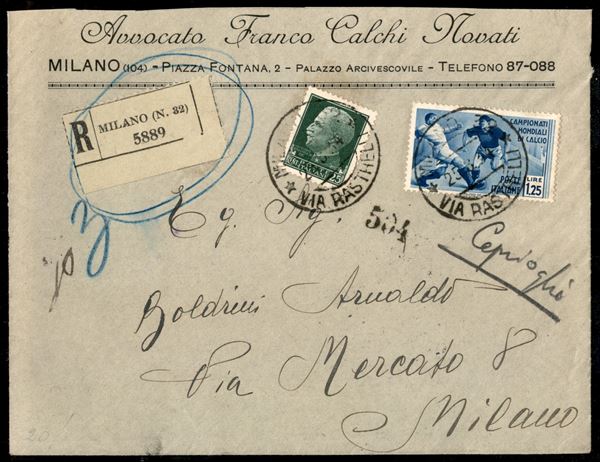 Avvocato Franco Calchi Novati
MILANO (104) - PIAZZA FONTANA, 2 - PALAZZO ARCIVESCOVILE - TELEFONO 87-088
R
MILANO (N. 32)
5889
CAMPIONATI
MONDIALI
DI CALCIO
POSTE
ITALIANE
LIRE
1,25
MILANO
VIA RASTRELLI
VIA RAS
504
Eg. Sig.
Boldrini Arnaldo
Via Mercato 8
Milano